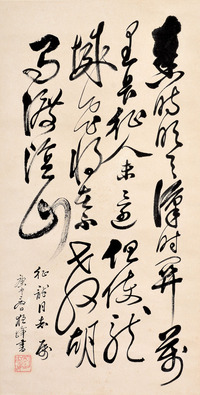 秦時明月漢時關萬
里長征人未還但使龍
城飛將在不教胡
馬渡陰山